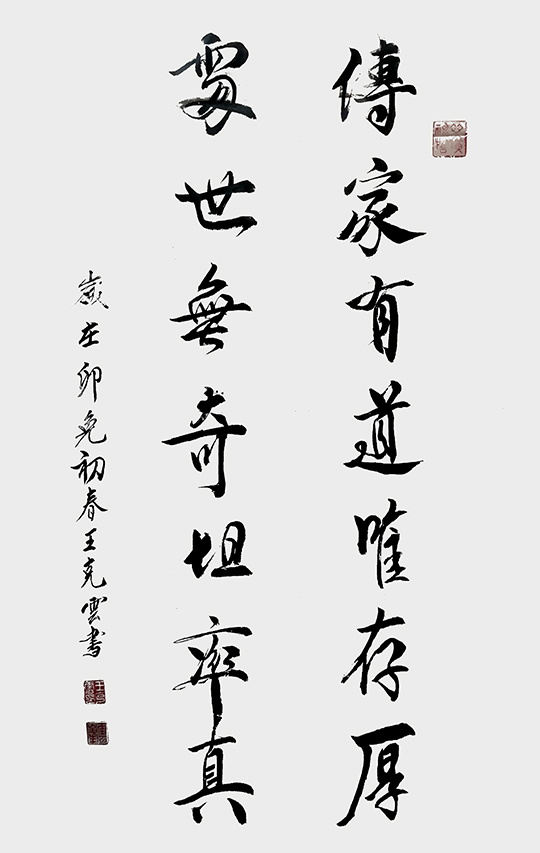 傳家有道唯存厚
處世無奇坦率真
歲在卯兔初春王克雲书